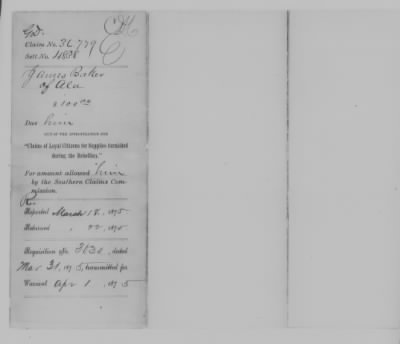 Claim No. 36,779
Sett. No. 4838
James Baker
of Ala
$100.00
Due him
OUT OF THE APPROPRIATION FOR
"Claims of Loyal Citizens for Supplies furnished
during the Rebellion."
For amount allowed him
by the Southern Claims Com-
mission.
R.
Reported March 18, 1875
Returned " 22, 1875
Requisition No. 3630, dated
Mar 31, 1875, transmitted for
Warrant Apr 1, 1875